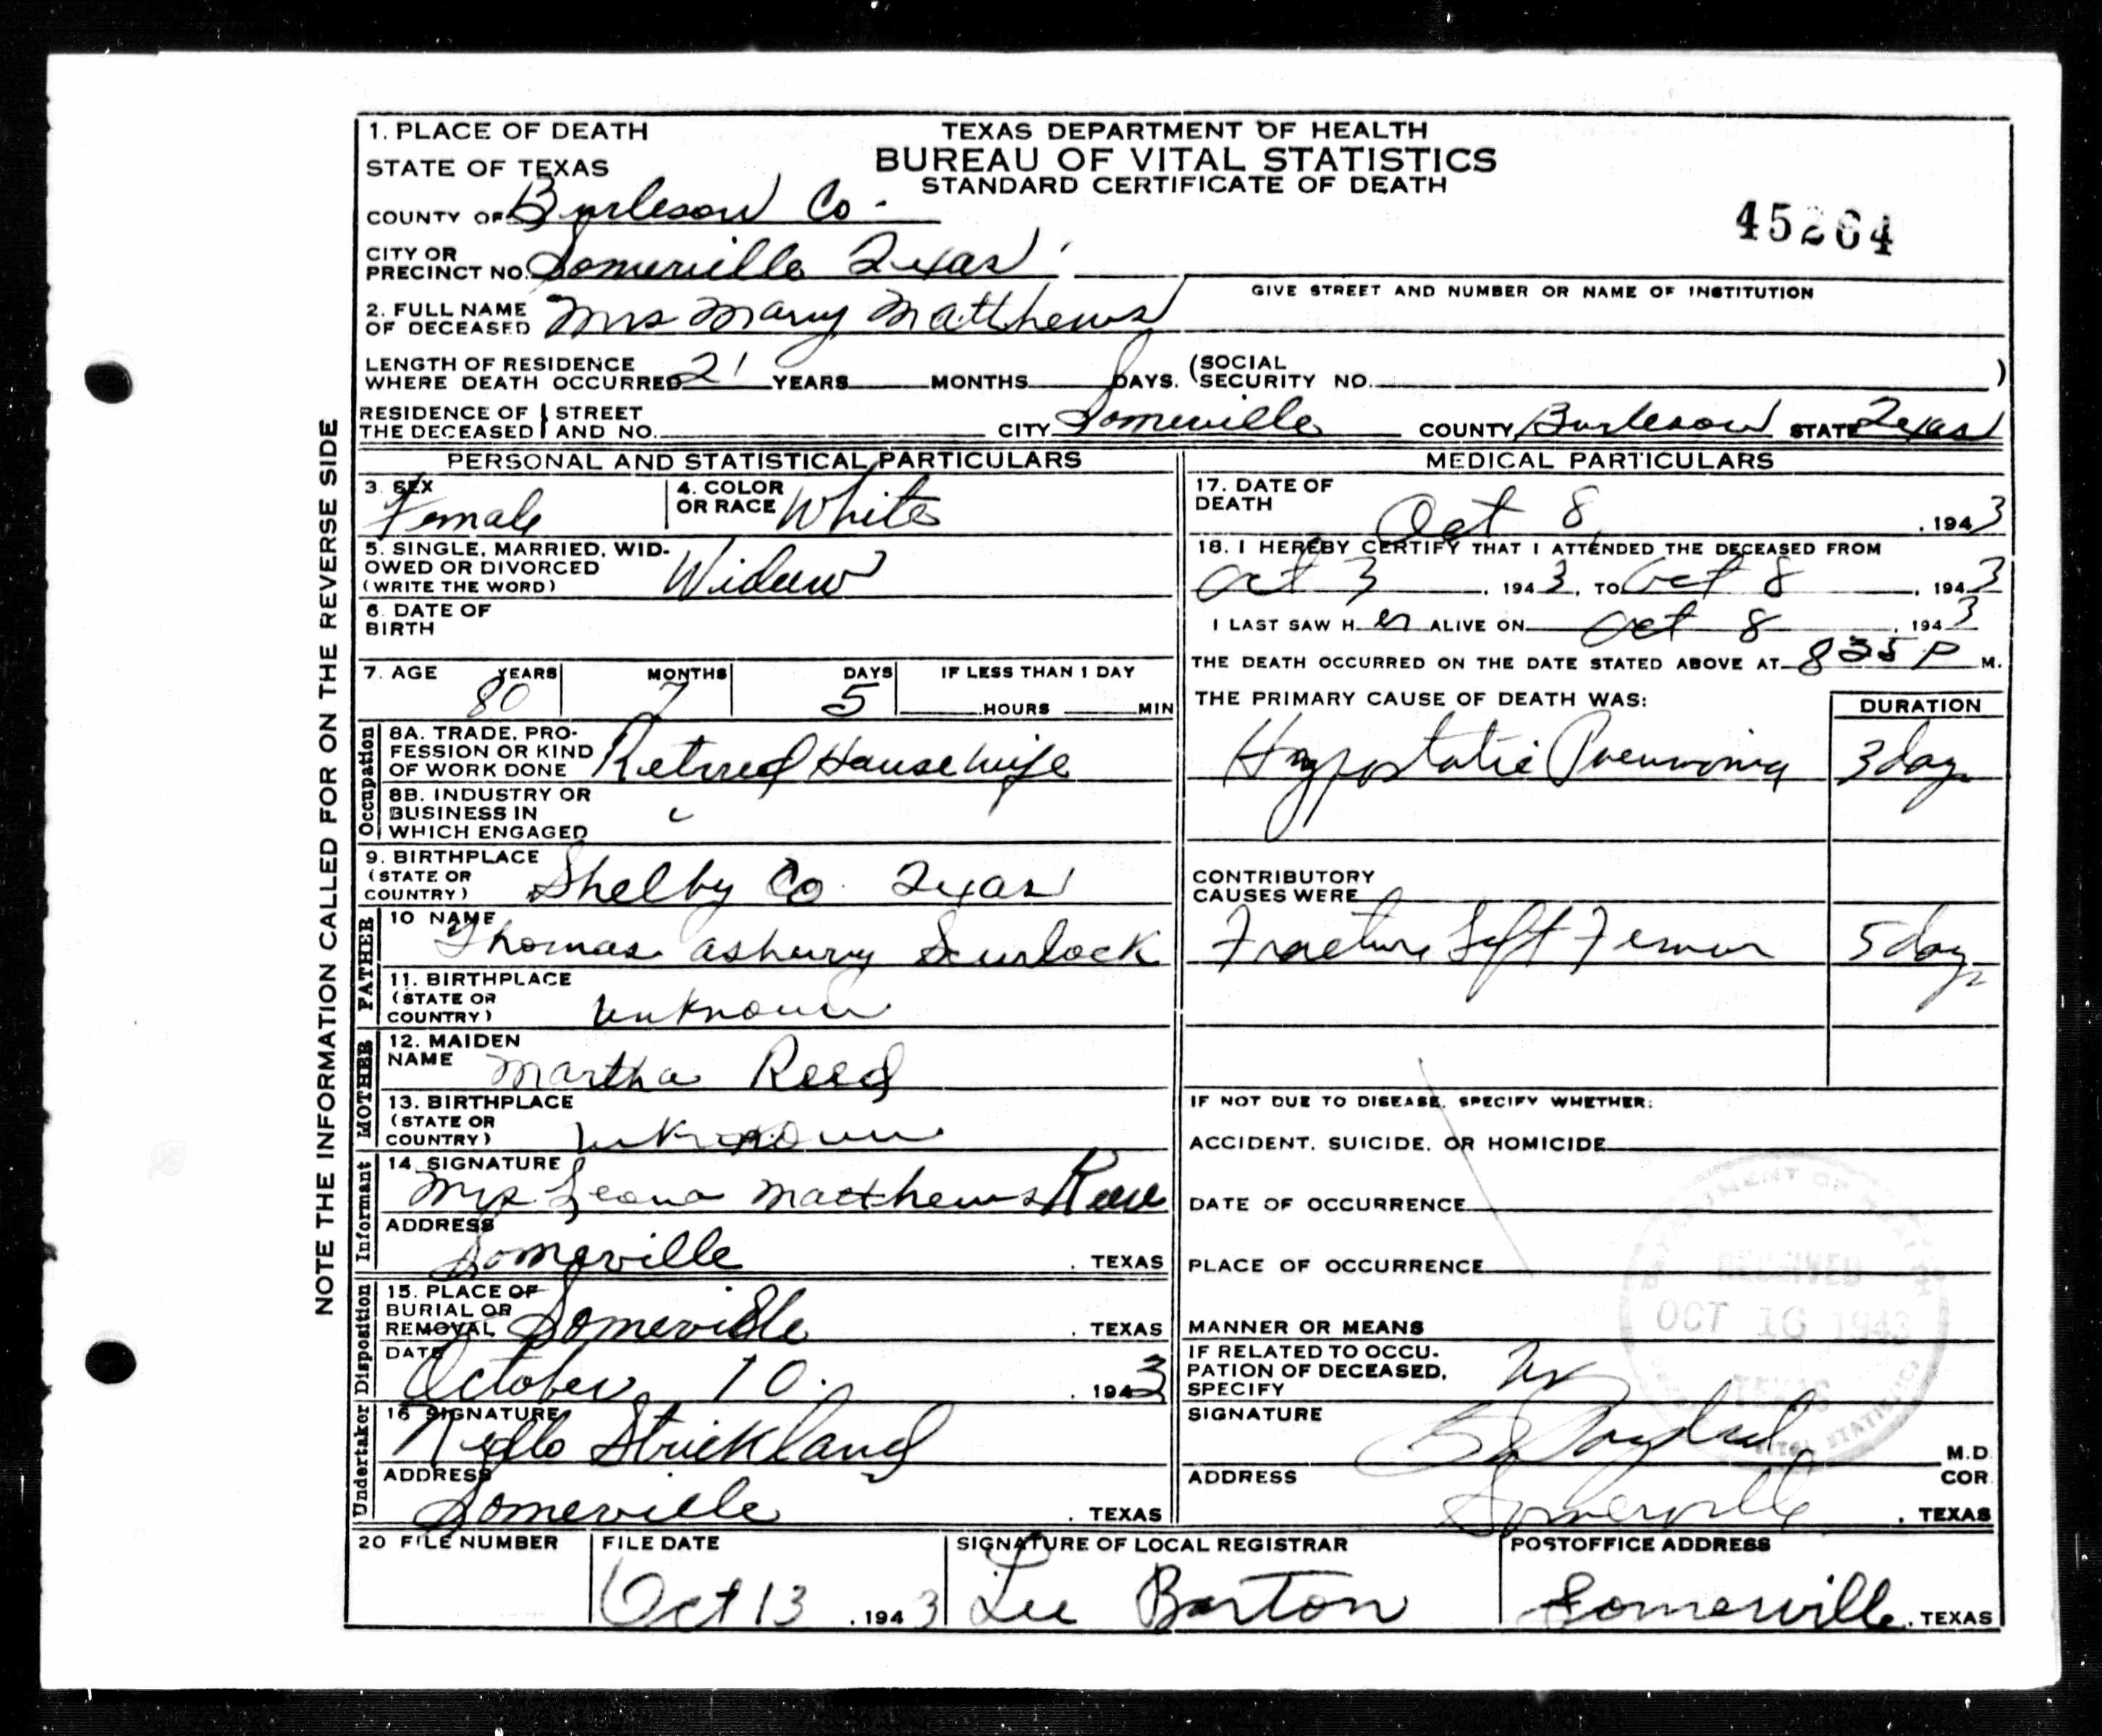 1. PLACE OF DEATH
STATE OF TEXAS
COUNTY OF Burleson Co.
CITY OR PRECINCT NO. Somerville Texas
TEXAS DEPARTMENT OF HEALTH
BUREAU OF VITAL STATISTICS
STANDARD CERTIFICATE OF DEATH
45264
GIVE STREET AND NUMBER OR NAME OF INSTITUTION
2. FULL NAME OF DECEASED Mrs Mary Matthews
LENGTH OF RESIDENCE WHERE DEATH OCCURRED 21 YEARS MONTHS DAYS. (SOCIAL SECURITY NO. )
RESIDENCE OF THE DECEASED STREET AND NO. CITY Somerville COUNTY Burleson STATE Texas
NOTE THE INFORMATION CALLED FOR ON THE REVERSE SIDE
PERSONAL AND STATISTICAL PARTICULARS
3. SEX Female
4. COLOR OR RACE White
5. SINGLE, MARRIED, WIDOWED OR DIVORCED (WRITE THE WORD) Widow
6. DATE OF BIRTH
7. AGE 80 YEARS 7 MONTHS 5 DAYS IF LESS THAN 1 DAY HOURS MIN
Occupation
8A. TRADE, PROFESSION OR KIND OF WORK DONE Retired Housewife
8B. INDUSTRY OR BUSINESS IN WHICH ENGAGED
9. BIRTHPLACE (STATE OR COUNTRY) Shelby Co. Texas
FATHER
10 NAME Thomas Asbury Scurlock
11. BIRTHPLACE (STATE OR COUNTRY) Unknown
MOTHER
12. MAIDEN NAME Martha Reed
13. BIRTHPLACE (STATE OR COUNTRY) Unknown
Informant
14. SIGNATURE Mrs Leona Matthews
ADDRESS Somerville, TEXAS
Disposition
15. PLACE OF BURIAL OR REMOVAL Somerville, TEXAS
DATE October 10. , 1943
Undertaker
16 SIGNATURE Strickland
ADDRESS Somerville, TEXAS
MEDICAL PARTICULARS
17. DATE OF DEATH Oct 8, 1943
18. I HEREBY CERTIFY THAT I ATTENDED THE DECEASED FROM
Oct 3, 1943, TO Oct 8, 1943
I LAST SAW HER ALIVE ON Oct 8, 1943
THE DEATH OCCURRED ON THE DATE STATED ABOVE AT 835 P M.
THE PRIMARY CAUSE OF DEATH WAS: DURATION
Hypostatic Pneumonia 3 days
CONTRIBUTORY CAUSES WERE
Fracture Left Femur 5 days
IF NOT DUE TO DISEASE, SPECIFY WHETHER:
ACCIDENT, SUICIDE, OR HOMICIDE
DATE OF OCCURRENCE
PLACE OF OCCURRENCE
MANNER OR MEANS
IF RELATED TO OCCUPATION OF DECEASED, SPECIFY
SIGNATURE M.D. COR
ADDRESS Somerville, TEXAS
DEPARTMENT OF HEALTH
RECEIVED
OCT 16 1943
TEXAS
20 FILE NUMBER
FILE DATE Oct 13, 1943
SIGNATURE OF LOCAL REGISTRAR Lee Barton
POSTOFFICE ADDRESS Somerville, TEXAS